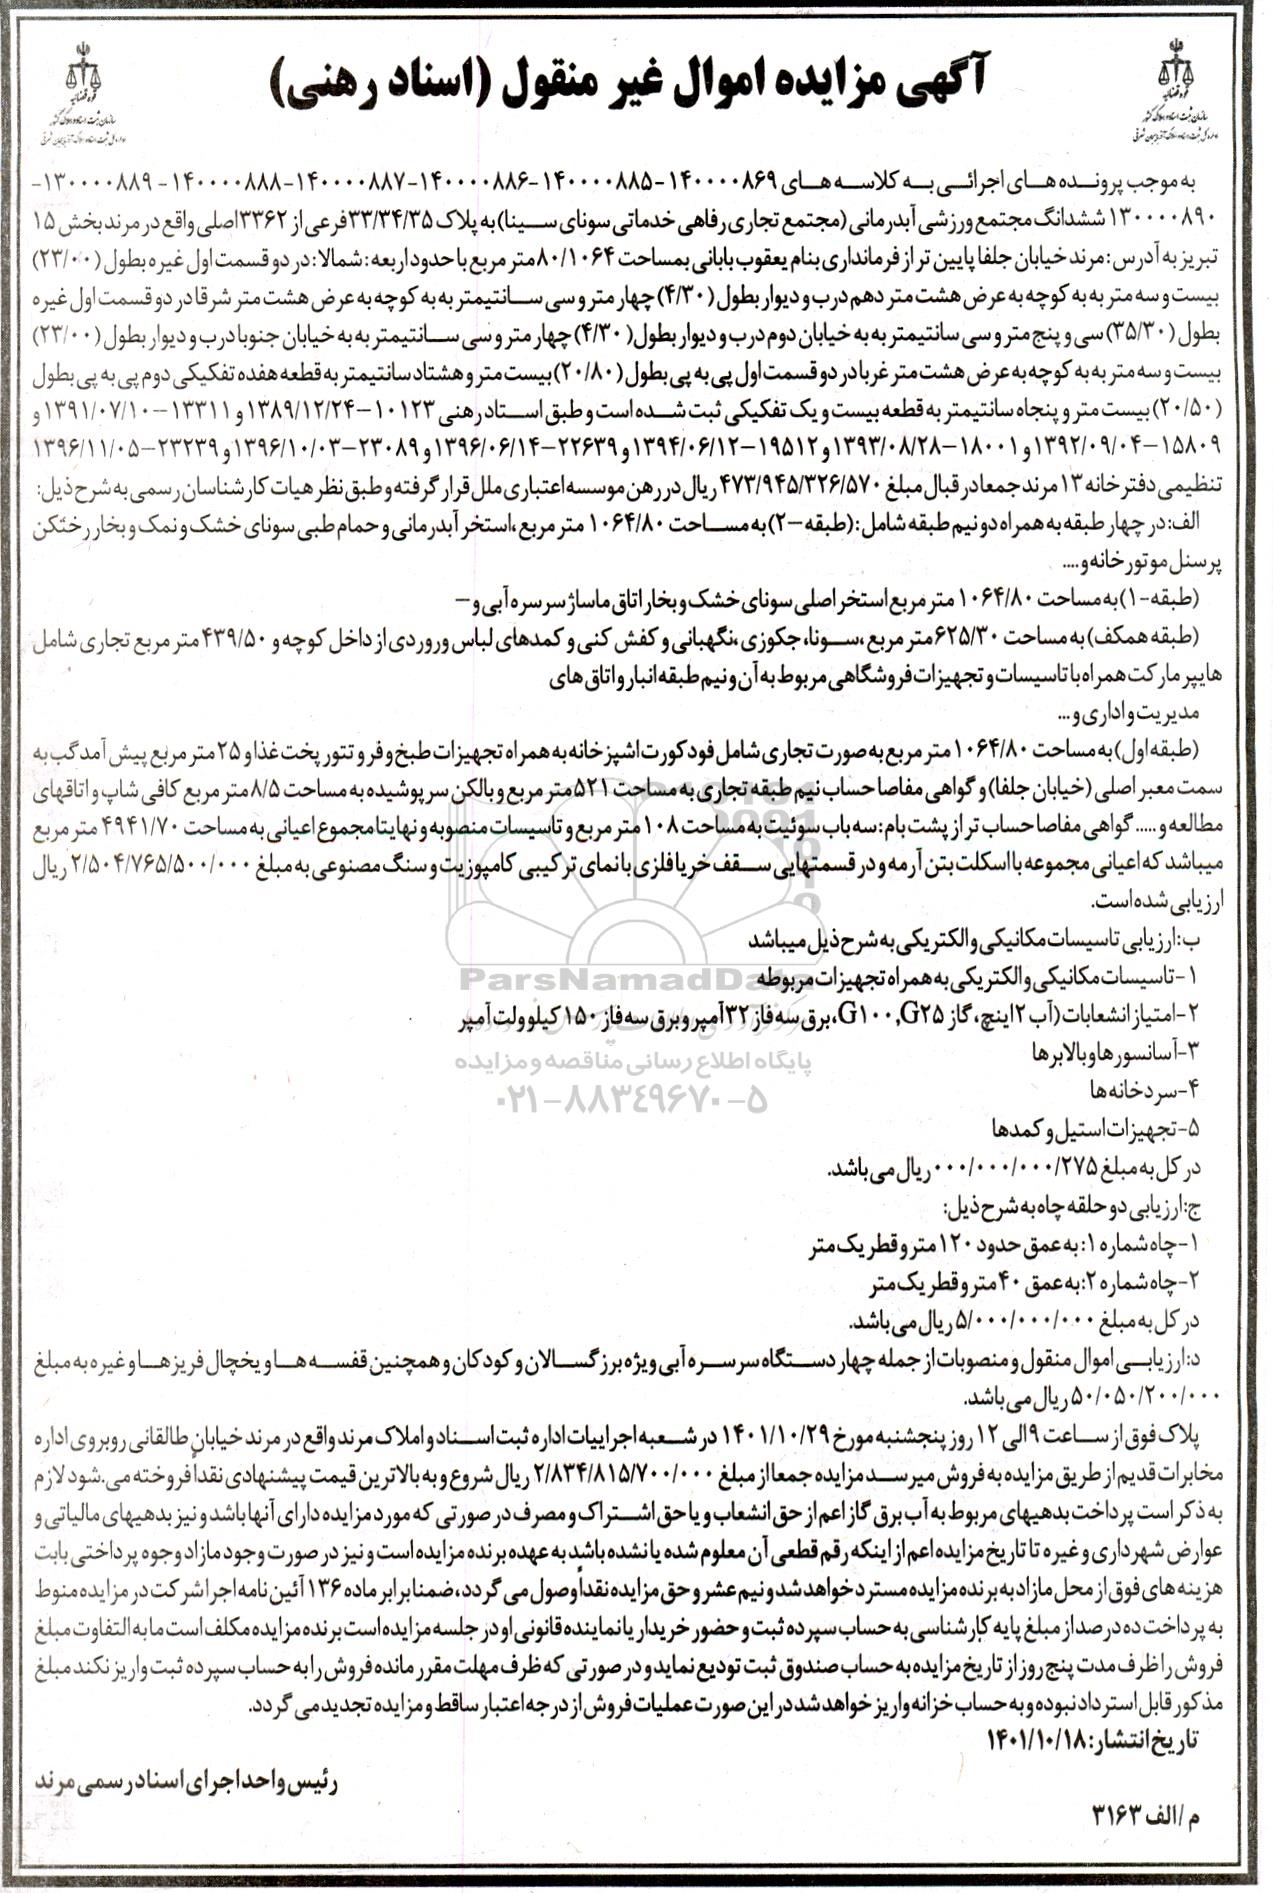 آگهی مزایده اموال غیر منقول (اسناد رهنی)
قوه قضائیه
سازمان ثبت اسناد و املاک کشور
اداره کل ثبت اسناد و املاک آذربایجان شرقی
قوه قضائیه
سازمان ثبت اسناد و املاک کشور
اداره کل ثبت اسناد و املاک آذربایجان شرقی
به موجب پرونده های اجرائی به کلاسه های ۱۴۰۰۰۰۸۶۹-۱۴۰۰۰۰۸۸۵-۱۴۰۰۰۰۸۸۶-۱۴۰۰۰۰۸۸۷-۱۴۰۰۰۰۸۸۸-۱۳۰۰۰۰۸۸۹-
۱۳۰۰۰۰۸۹۰ ششدانگ مجتمع ورزشی آبدرمانی (مجتمع تجاری رفاهی خدماتی سونای سینا) به پلاک ۳۳/۳۴/۳۵فرعی از ۳۳۶۲اصلی واقع در مرند بخش ۱۵
تبریز به آدرس: مرند خیابان جلفا پایین تر از فرمانداری بنام یعقوب بابانی بمساحت ۸۰/۱۰۶۴متر مربع با حدود اربعه: شمالا: در دو قسمت اول غیره بطول (۲۳/۰۰)
بیست و سه متر به به کوچه به عرض هشت متر دهم درب و دیوار بطول (۴/۳۰) چهار متر و سی سانتیمتر به به کوچه به عرض هشت متر شرقا در دو قسمت اول غیره
بطول (۳۵/۳۰) سی و پنج متر و سی سانتیمتر به به خیابان دوم درب و دیوار بطول( ۴/۳۰) چهار متر و سی سانتیمتر به به خیابان جنوبا درب و دیوار بطول (۲۳/۰۰)
بیست و سه متر به به کوچه به عرض هشت متر غربا در دو قسمت اول پی به پی بطول (۲۰/۸۰) بیست متر و هشتاد سانتیمتر به قطعه هفده تفکیکی دوم پی به پی بطول
(۲۰/۵۰) بیست متر و پنجاه سانتیمتر به قطعه بیست و یک تفکیکی ثبت شده است و طبق استاد رهنی ۱۰۱۲۳-۱۳۸۹/۱۲/۲۴ و ۱۳۳۱۱-۱۳۹۱/۰۷/۱۰ و
۱۵۸۰۹-۱۳۹۲/۰۹/۰۴ و ۱۸۰۰۱-۱۳۹۳/۰۸/۲۸ و ۱۹۵۱۲-۱۳۹۴/۰۶/۱۲ و ۲۲۶۳۹-۱۳۹۶/۰۶/۱۴ و ۲۳۰۸۹-۱۳۹۶/۱۰/۰۳ و ۲۳۲۳۹-۱۳۹۶/۱۱/۰۵
تنظیمی دفترخانه ۱۳ مرند جمعا در قبال مبلغ ۴۷۳/۹۴۵/۳۲۶/۵۷۰ ریال در رهن موسسه اعتباری ملل قرار گرفته و طبق نظر هیات کارشناسان رسمی به شرح ذیل:
الف: در چهار طبقه به همراه دو نیم طبقه شامل: (طبقه -۲) به مساحت ۱۰۶۴/۸۰ متر مربع ،استخر آبدرمانی و حمام طبی سونای خشک و نمک و بخار رختکن
پرسنل موتور خانه و....
(طبقه-۱) به مساحت ۱۰۶۴/۸۰ متر مربع استخر اصلی سونای خشک و بخار اتاق ماساژ سرسره آبی و-
(طبقه همکف) به مساحت ۶۲۵/۳۰متر مربع ،سونا، جکوزی ،نگهبانی و کفش کنی و کمدهای لباس و وروردی از داخل کوچه و ۴۳۹/۵۰ متر مربع تجاری شامل
هایپر مارکت همراه با تاسیسات و تجهیزات فروشگاهی مربوط به آن و نیم طبقه انبار و اتاق های
مدیریت و اداری و ...
(طبقه اول) به مساحت ۱۰۶۴/۸۰ متر مربع به صورت تجاری شامل فود کورت اشپزخانه به همراه تجهیزات طبخ و فر و تنور پخت غذا و ۲۵ متر مربع پیش آمدگی به
سمت معبر اصلی (خیابان جلفا) و گواهی مفاصا حساب نیم طبقه تجاری به مساحت ۵۲۱متر مربع و بالکن سرپوشیده به مساحت ۸/۵متر مربع کافی شاپ و اتاقهای
مطالعه و ..... گواهی مفاصا حساب تراز پشت بام: سه باب سوئیت به مساحت ۱۰۸ متر مربع و تاسیسات منصوبه و نهایتا مجموع اعیانی به مساحت ۴۹۴۱/۷۰ متر مربع
میباشد که اعیانی مجموعه با اسکلت بتن آرمه و در قسمتهایی سقف خرپا فلزی با نمای ترکیبی کامپوزیت و سنگ مصنوعی به مبلغ ۲/۵۰۴/۷۶۵/۵۰۰/۰۰۰ ریال
ارزیابی شده است.
ب: ارزیابی تاسیسات مکانیکی و الکتریکی به شرح ذیل میباشد
۱-تاسیسات مکانیکی و الکتریکی به همراه تجهیزات مربوطه
۲-امتیاز انشعابات (آب ۲ اینچ، گاز G۱۰۰,G۲۵، برق سه فاز ۳۲آمپر و برق سه فاز ۱۵۰ کیلوولت آمپر
۳-آسانسورها و بالابرها
۴-سردخانه ها
۵-تجهیزات استیل و کمدها
در کل به مبلغ ۲۷۵/۰۰۰/۰۰۰/۰۰۰ ریال می باشد.
ج: ارزیابی دو حلقه چاه به شرح ذیل:
۱-چاه شماره ۱: به عمق حدود ۱۲۰ متر و قطر یک متر
۲-چاه شماره ۲: به عمق ۴۰ متر و قطر یک متر
در کل به مبلغ ۵/۰۰۰/۰۰۰/۰۰۰ ریال می باشد.
د: ارزیابی اموال منقول و منصوبات از جمله چهار دستگاه سرسره آبی ویژه بزرگسالان و کودکان و همچنین قفسه ها و یخچال فریزها و غیره به مبلغ
۵۰/۰۵۰/۲۰۰/۰۰۰ ریال می باشد.
پلاک فوق از ساعت ۹ الی ۱۲ روز پنجشنبه مورخ ۱۴۰۱/۱۰/۲۹ در شعبه اجراییات اداره ثبت اسناد و املاک مرند واقع در مرند خیابان طالقانی روبروی اداره
مخابرات قدیم از طریق مزایده به فروش میرسد مزایده جمعا از مبلغ ۲/۸۳۴/۸۱۵/۷۰۰/۰۰۰ ریال شروع و به بالاترین قیمت پیشنهادی نقداً فروخته می.شود لازم
به ذکر است پرداخت بدهیهای مربوط به آب برق گاز اعم از حق انشعاب و یا حق اشتراک و مصرف در صورتی که مورد مزایده دارای آنها باشد و نیز بدهیهای مالیاتی و
عوارض شهرداری و غیره تا تاریخ مزایده اعم از اینکه رقم قطعی آن معلوم شده یا نشده باشد به عهده برنده مزایده است و نیز در صورت وجود مازاد وجوه پرداختی بابت
هزینه های فوق از محل مازاد به برنده مزایده مسترد خواهد شد و نیم عشر و حق مزایده نقداً وصول می گردد، ضمنا برابر ماده ۱۳۶ آئین نامه اجرا شرکت در مزایده منوط
به پرداخت ده درصد از مبلغ پایه کارشناسی به حساب سپرده ثبت و حضور خریدار یا نماینده قانونی او در جلسه مزایده است برنده مزایده مکلف است ما به التفاوت مبلغ
فروش را ظرف مدت پنج روز از تاریخ مزایده به حساب صندوق ثبت تودیع نماید و در صورتی که ظرف مهلت مقرر مانده فروش را به حساب سپرده ثبت واریز نکند مبلغ
مذکور قابل استرداد نبوده و به حساب خزانه واریز خواهد شد در این صورت عملیات فروش از درجه اعتبار ساقط و مزایده تجدید می گردد.
تاریخ انتشار: ۱۴۰۱/۱۰/۱۸
رئیس واحد اجرای اسناد رسمی مرند
م/الف ۳۱۶۳
ParsNamadData
پایگاه اطلاع رسانی مناقصه و مزایده
۰۲۱-۸۸۳۴۹۶۷۰-۵